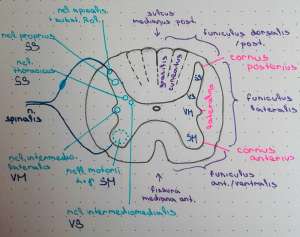 ncl. apicalis
+ subst. Rol.
sulcus
medianus post.
funiculus dorsalis
/post.
ncl. proprius
SS
cornus
posterius
ncl.
thoracicus
SS
gracilis
cuneatus
SS
VS
VM
SM
lateralis
funiculus
lateralis
n.
spinalis
ncl. intermedio
lateralis
VM
nclll. motorii
SM
cornus
anterius
fissura
mediana ant.
funiculus
ant./ventralis
ncl intermediomedialis
VS